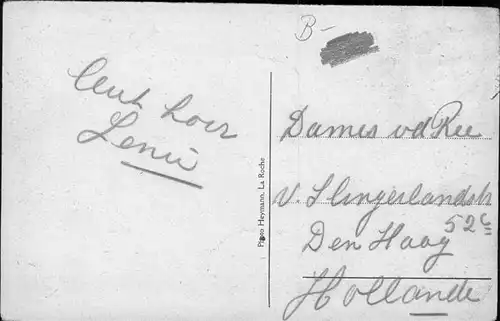 B-
Leni
Photo Heymann, La Roche
Dames vd Ree
v. Slingerlandstr
52c
Den Haag
Hollande